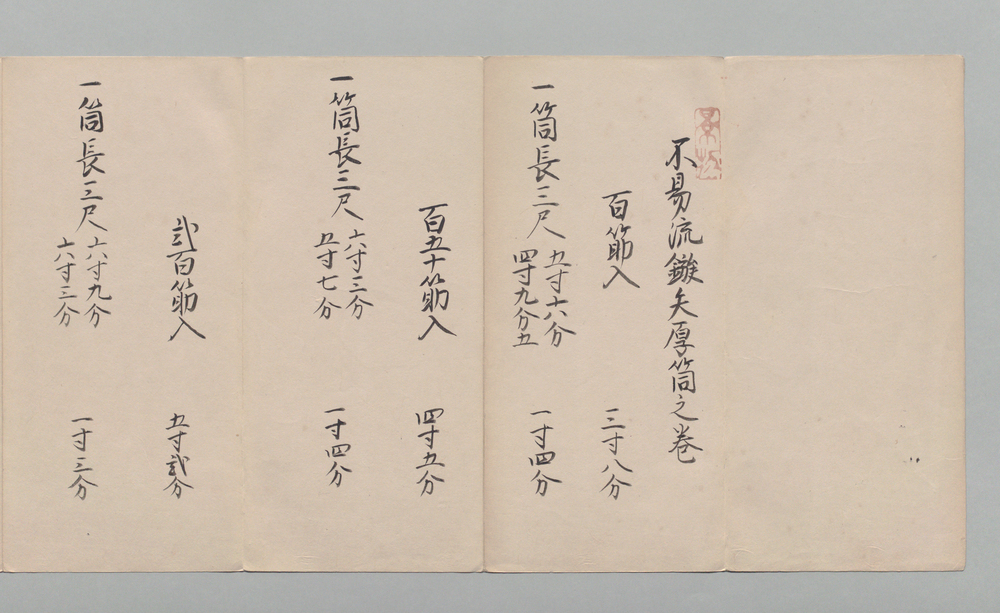 不易流鏃矢厚筒之巻
百筋入 三寸八分
一筒長三尺 五寸十六分 四寸九分五 一寸四分
百五十筋入 四寸五分
一筒長三尺 六寸三分 五寸七分 一寸四分
弐百筋入 五寸弐分
一筒長三尺 六寸九分 六寸三分 一寸三分